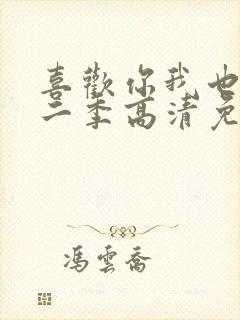 喜歡你我也
二季高清免
馮雲喬